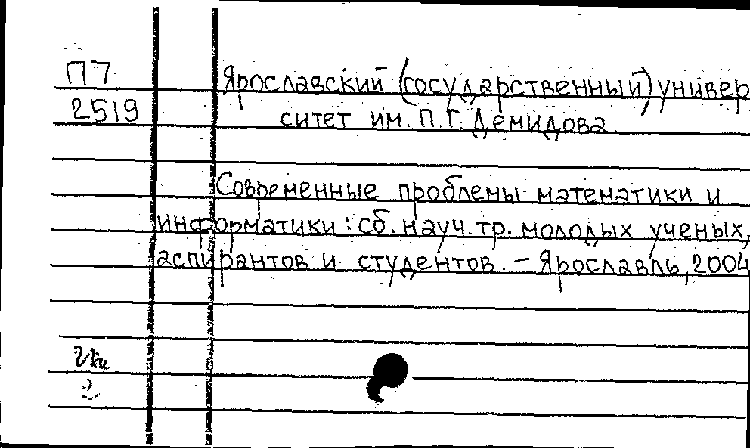 П7
2519
Ярославский (государственный) универ
ситет им. П.Г. Демидова
Современные проблемы математики и
информатики: сб. науч. тр. молодых ученых,
аспирантов и студентов. – Ярославль, 2004
2